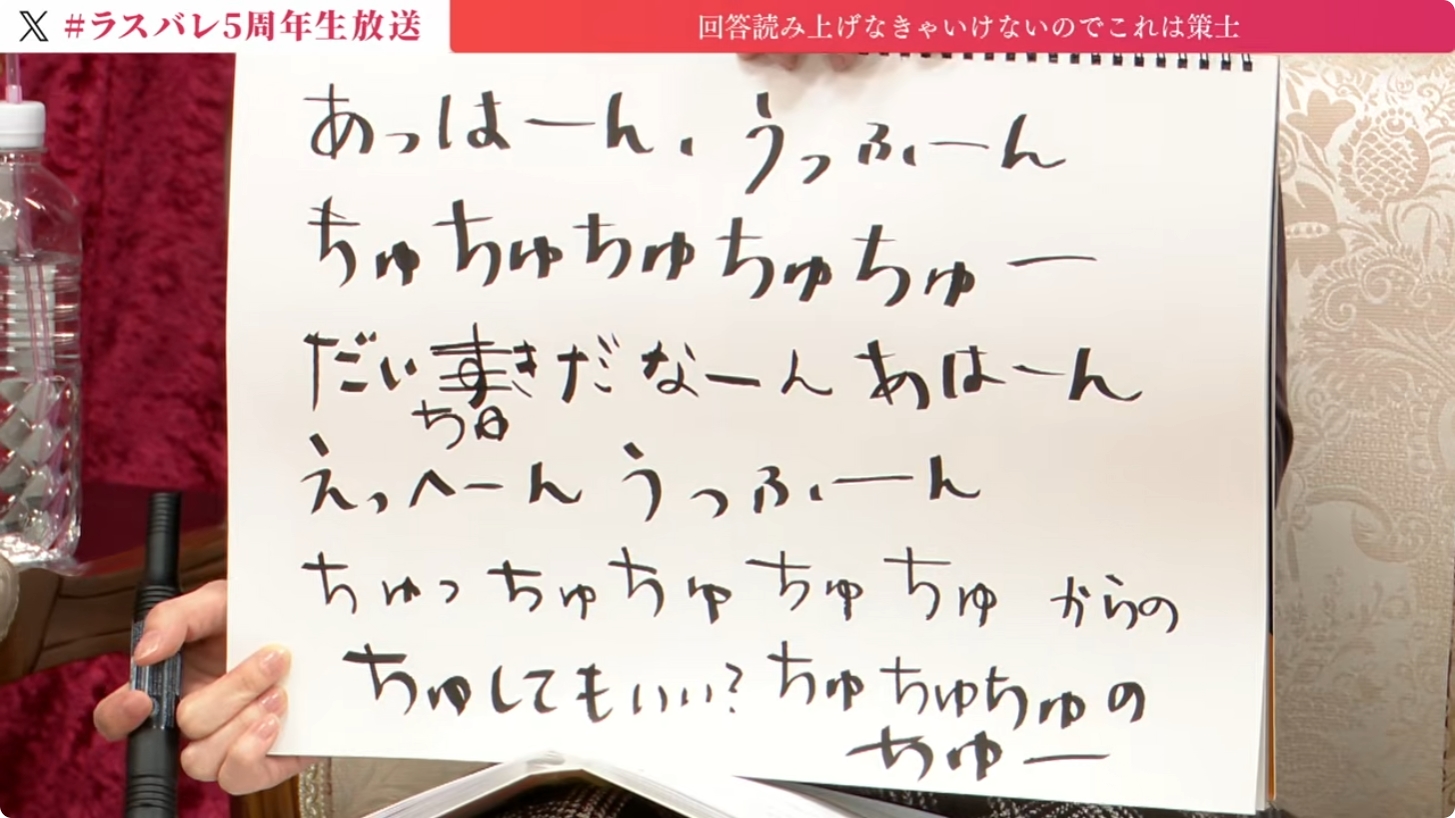 #ラスバレ5周年生放送
回答読み上げなきゃいけないのでこれは策士
あっはーん、うっふーん
ちゅちゅちゅちゅちゅー
だいきだなーん あはーん
ちゅ
えっへーん うっふーん
ちゅっちゅちゅちゅちゅ からの
ちゅしてもいい?ちゅちゅちゅの
ちゅー